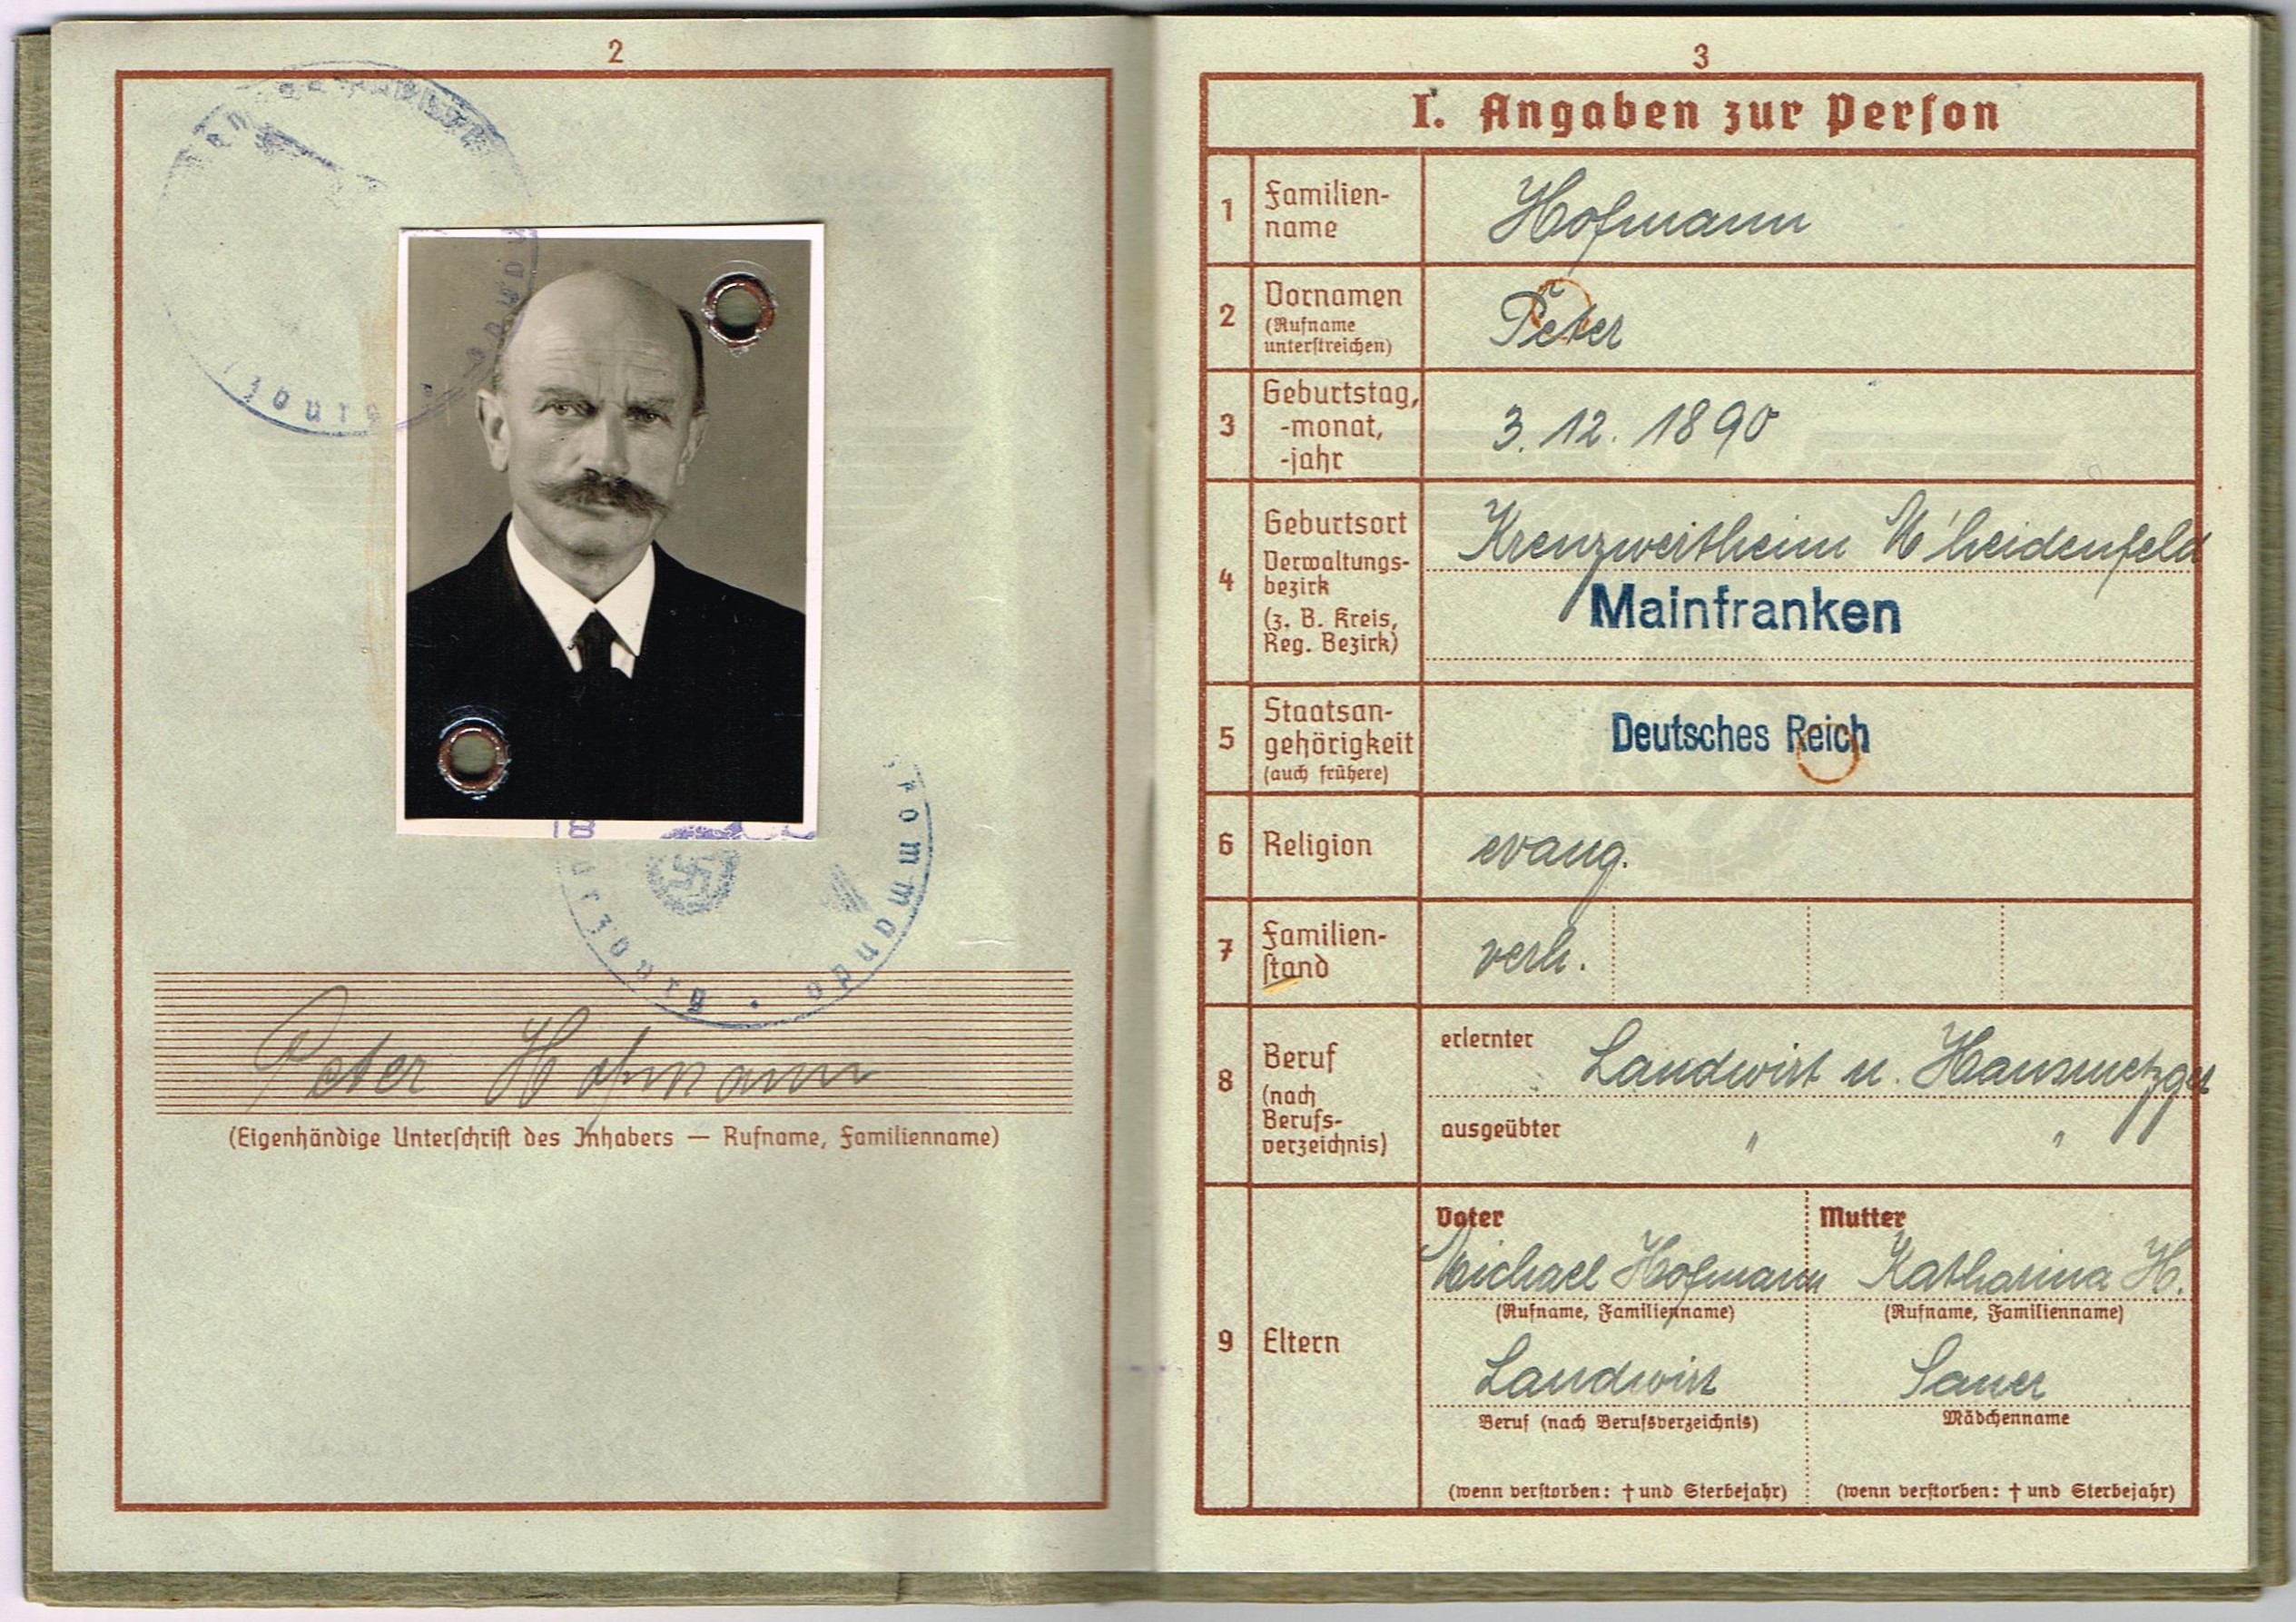 2
Kommando
rzburg
Peter Hofmann
(Eigenhändige Unterschrift des Inhabers — Rufname, Familienname)
3
I. Angaben zur Person
1 Familien-
name
Hofmann
2 Vornamen
(Rufname
unterstreichen)
Peter
3 Geburtstag,
-monat,
-jahr
3. 12. 1890
4 Geburtsort
Verwaltungs-
bezirk
(z. B. Kreis,
Reg. Bezirk)
Kreuzwertheim M'heidenfeld
Mainfranken
5 Staatsan-
gehörigkeit
(auch frühere)
Deutsches Reich
6 Religion
evang.
7 Familien-
stand
verh.
8 Beruf
(nach
Berufs-
verzeichnis)
erlernter Landwirt u. Hausmetzger
ausgeübter " "
9 Eltern
Vater
Michael Hofmann
(Rufname, Familienname)
Landwirt
Beruf (nach Berufsverzeichnis)
(wenn verstorben: † und Sterbejahr)
Mutter
Katharina H.
(Rufname, Familienname)
Sauer
Mädchenname
(wenn verstorben: † und Sterbejahr)